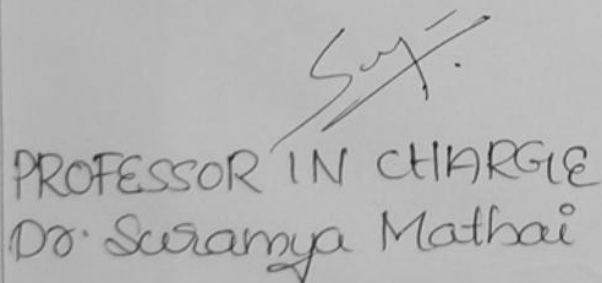 PROFESSOR IN CHARGE
Dr. Suramya Mathai